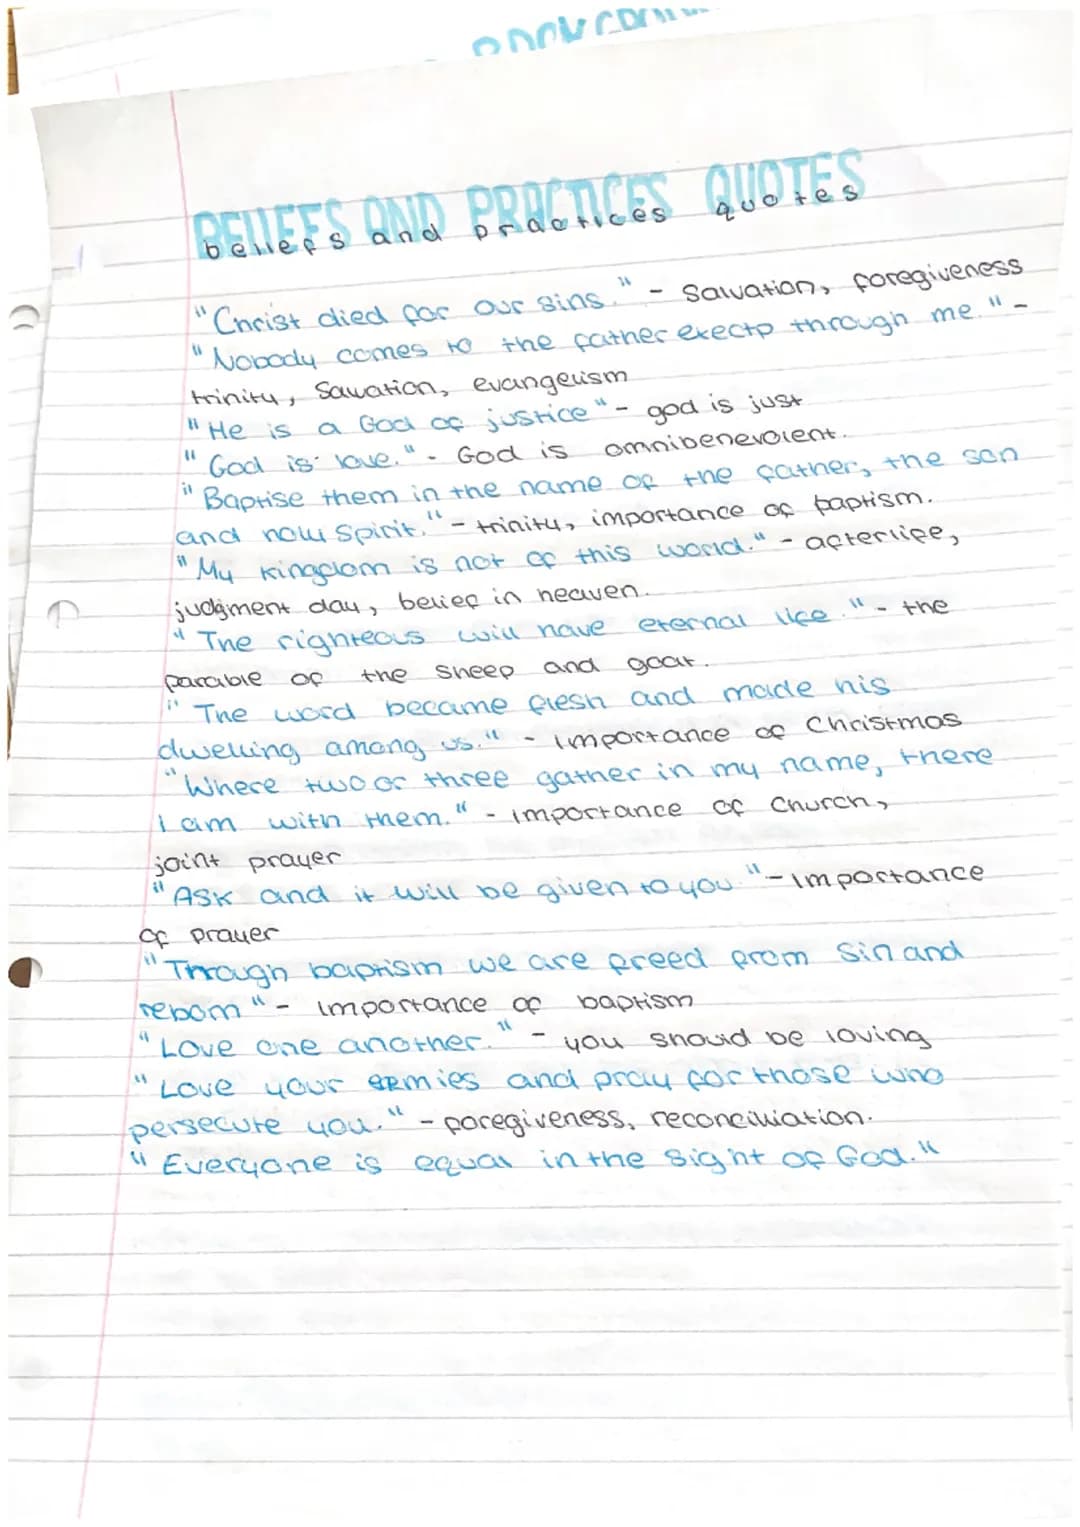 BELIEFS AND PRACTICES QUOTES
beliefs and practices quotes
"Christ died for our sins." - Salvation, foregiveness
"Nobody comes to the father exectp through me." -
trinity, Salvation, evangelism
"He is a God of justice" - god is just
"God is love." - God is omnibenevolent.
"Baptise them in the name of the father, the son
and holy Spirit." - trinity, importance of baptism.
"My kingdom is not of this world." - afterlife,
judgment day, belief in heaven.
"The righteous will have eternal life." - the
parable of the sheep and goat.
"The word became flesh and made his
dwelling among us." - importance of Christmas
"Where two or three gather in my name, there
I am with them." - importance of Church,
joint prayer
"Ask and it will be given to you" - importance
of prayer
"Through baptism we are freed from Sin and
reborn" - importance of baptism
"Love one another." - you should be loving
"Love your enmies and pray for those who
persecute you." - foregiveness, reconciliation.
"Everyone is equal in the sight of God."